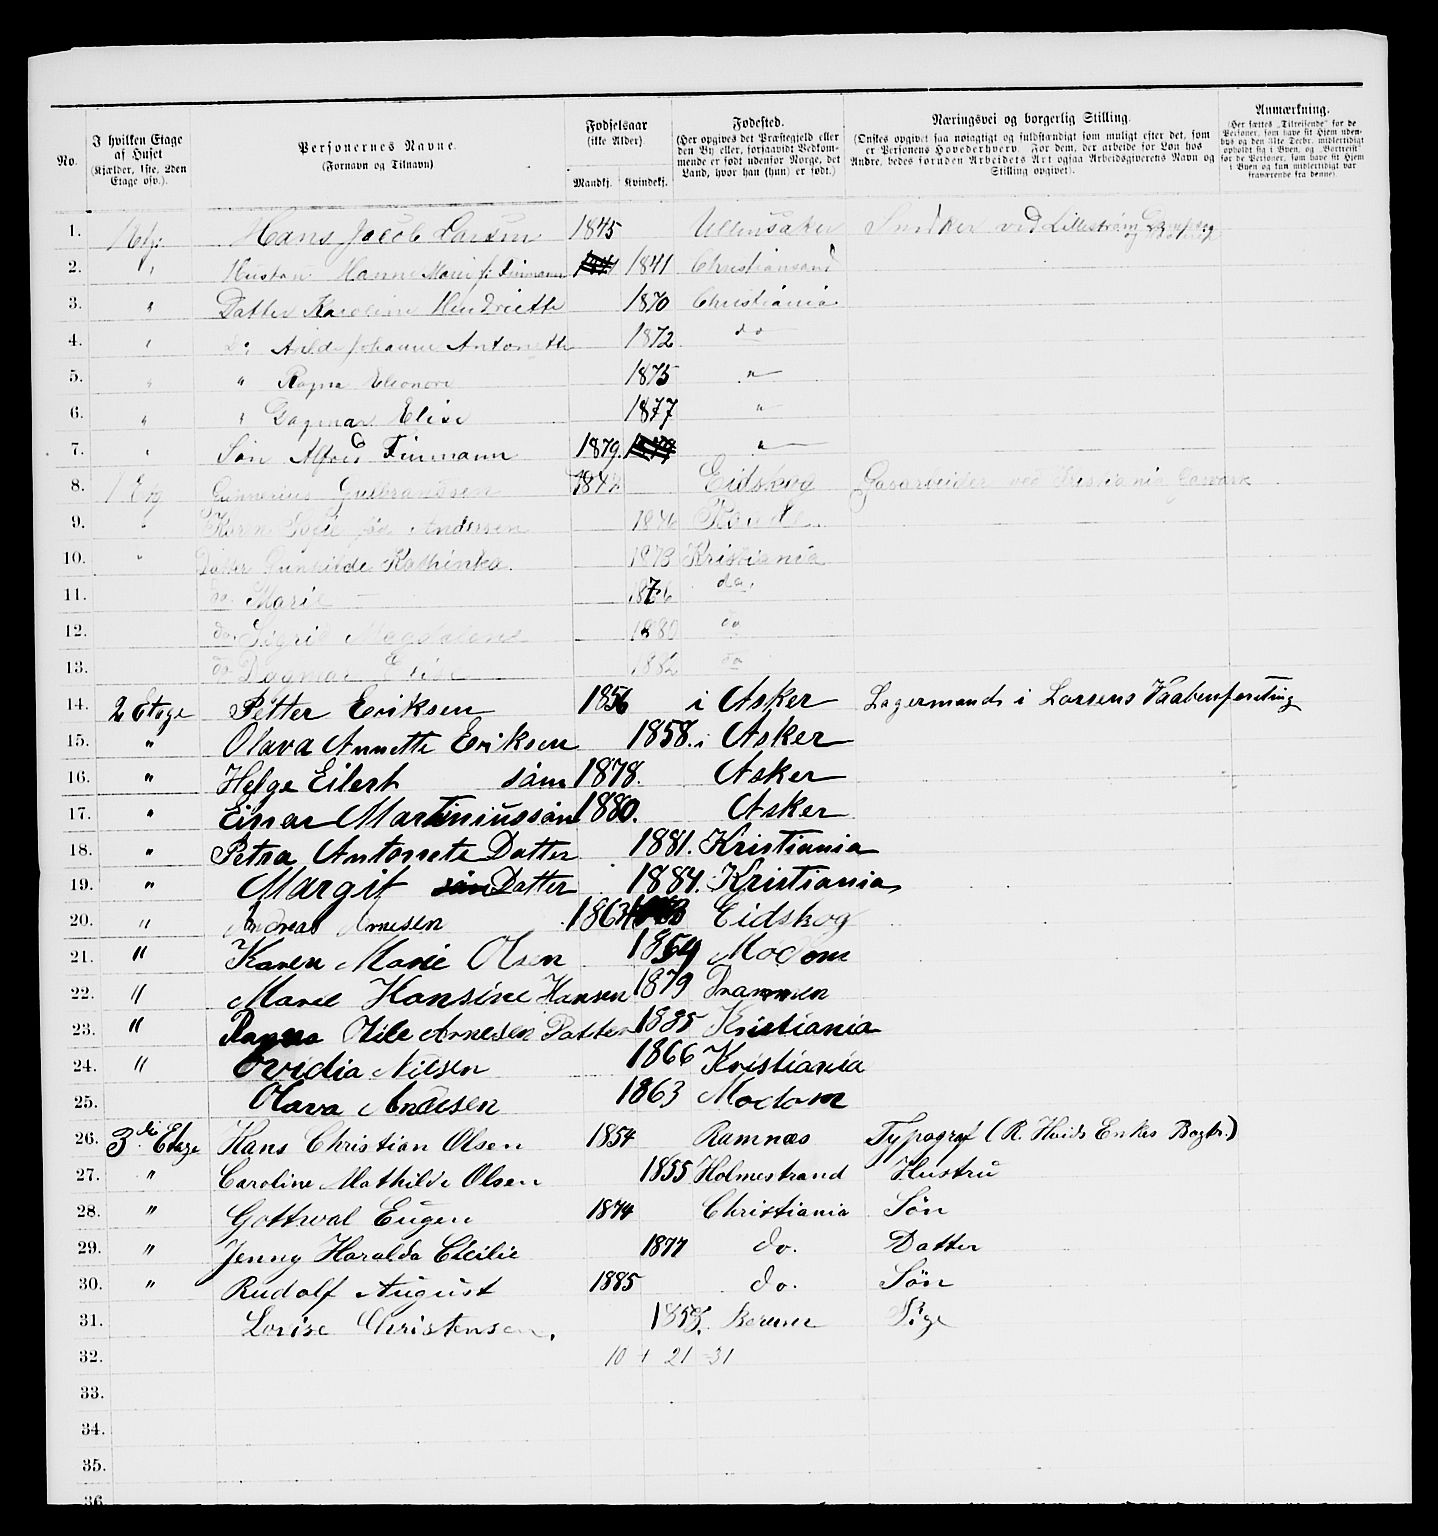 No. | I hvilken Etage af Huset (Kjælder, 1ste, 2den Etage osv.). | Personernes Navne. (Fornavn og Tilnavn) | Fødselsaar (ikke Alder) Mandkj. | Kvindekj. | Fødested. (Her opgives det Præstegjeld eller den By eller, forsaavidt Vedkommende er født udenfor Norge, det Land, hvor han (hun) er født.) | Næringsvei og borgerlig Stilling. (Ønskes opgivet saa nøiagtigt og fuldstændigt som muligt efter det, som er Personens Hovederhverv. For dem, der arbeide for Løn hos Andre, bedes foruden Arbeidets Art ogsaa Arbeidsgiverens Navn og Stilling opgivet). | Anmærkning. (Her sættes „Tilreisende" for de Personer, som have sit Hjem udenbys og den 31te Decbr. midlertidigt opholdt sig i Byen, og „Bortreist" for de Personer, som have sit Hjem i Byen og kun midlertidigt var fraværende fra denne).
1. Hans Jacob Larsen 1845 Ullensaker Snedker ved Lillestrøm
2. " Hustru Hanne Marie f: Finmann 1841 Christiansand
3. " Datter Karoline Hendriette 1870 Christiania
4. " Do: Johanne Antonette 1872 do
5. " " Ragna Eleonore 1875 "
6. " " Dagmar Elise 1877 "
7. " Søn Alfred Finmann 1879. "
8. 1 Etg Gunnerius Gulbrandsen Eidskog Gasarbeider ved Kristiania Gasværk
9. " Karn fød Andersen 1846 Raade.
10. " Datter Gunhilde Kathinka. 1873 Kristiania
11. do. Marie 1876 do.
12. do. Sigrid Magdalene 1880 do
13. do Dagmar Elise 1882 do
14. 2 Etage Petter Eriksen 1856 i Asker Lagermand i Larsens Vaabenforetning
15. " Olava Annette Eriksen 1858. i Asker
16. " Helge Eilert søn 1878. Asker
17. " Einar Martinius søn 1880. Asker
18. " Petra Antonete Datter 1881. Kristiania
19. " Margit Datter 1884. Kristiania
20. " Andreas Arnesen 1863 Eidskog
21. " Karen Marie Olsen 1864 Modom
22. " Marie Hansine Hansen 1879 Drammen
23. " Ragna Arnesen Datter 1885 Kristiania
24. " Ovidia Nilsen 1866 Kristiania
25. Olava Andersen 1863 Modom
26. 3die Etage Hans Christian Olsen 1854 Ramnæs Typograf (R. Hviids Enkes Bogtr.)
27. " Caroline Mathilde Olsen 1855 Holmestrand Hustru
28. " Gottwal Eugen 1874 Christiania Søn
29. " Jenny Haralda Cecilie 1877 do. Datter
30. " Rudolf August 1885 do. Søn
31. Lovise Christensen. 1858. Berum Pige
32. 10 + 21 - 31
33.
34.
35.
36.